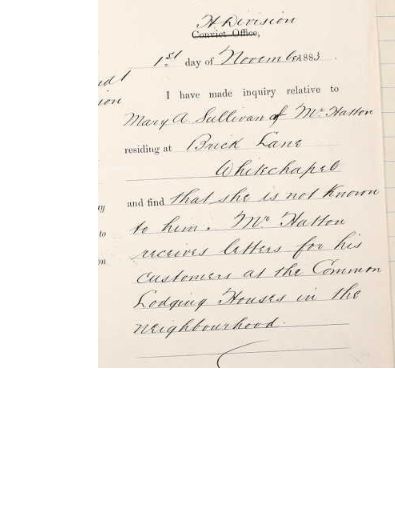 H Division
Convict Office,
1st day of November 1883
I have made inquiry relative to
Mary A Sullivan of Mr Hatton
residing at Brick Lane
Whitechapel
and find that she is not known
to him. Mr Hatton
receives letters for his
customers at the Common
Lodging Houses in the
neighbourhood.